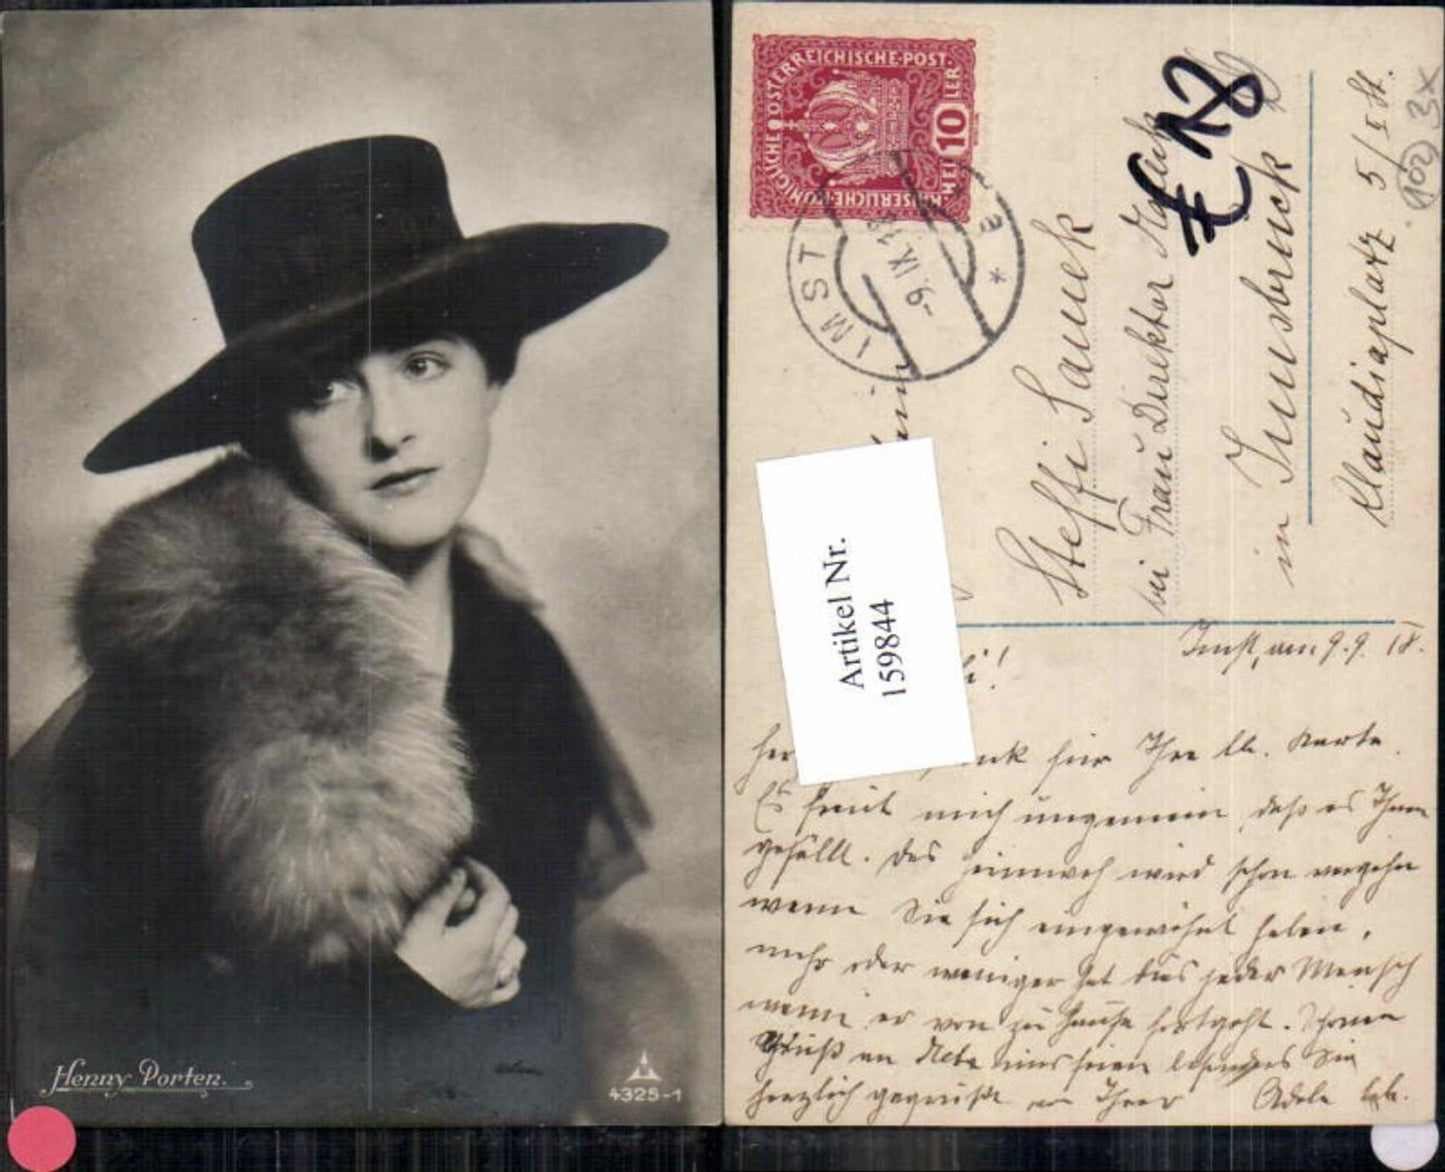 Henny Porten.
4325-1
KAISERLICHE KÖNIGLICHE ÖSTERREICHISCHE POST.
10 HELLER
IMST
-9. IX. 18
* a *
€ 18
3x
102
Steffi Sauek
bei Frau Direktor
in Innsbruck
Klaudiaplatz 5/I St.
Artikel Nr.
159844
Imst, am 9.9.18.
für Ihre lb. Karte.
Es freut mich ungemein, daß es Ihnen
gefällt. Das Heimweh wird schon vergehn
wenn Sie sich eingewöhnt haben,
mehr oder weniger hat dies jeder Mensch
wenn er von zu Hause fortgeht. Schönen
Gruß an
herzlich gegrüßt von Ihrer Adele